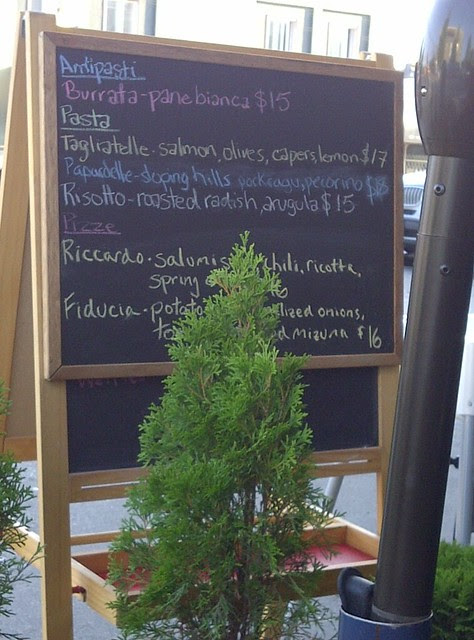 Antipasti
Burrata-pane bianca $15
Pasta
Tagliatelle-salmon, olives, capers, lemon $17
Papardelle-sloping hills pork ragu, pecorino
Risotto-roasted radish, arugula $15
Pizze
Riccardo. salumi chili, ricotta,
spring
Fiducia. potato onions,
mizuna $16